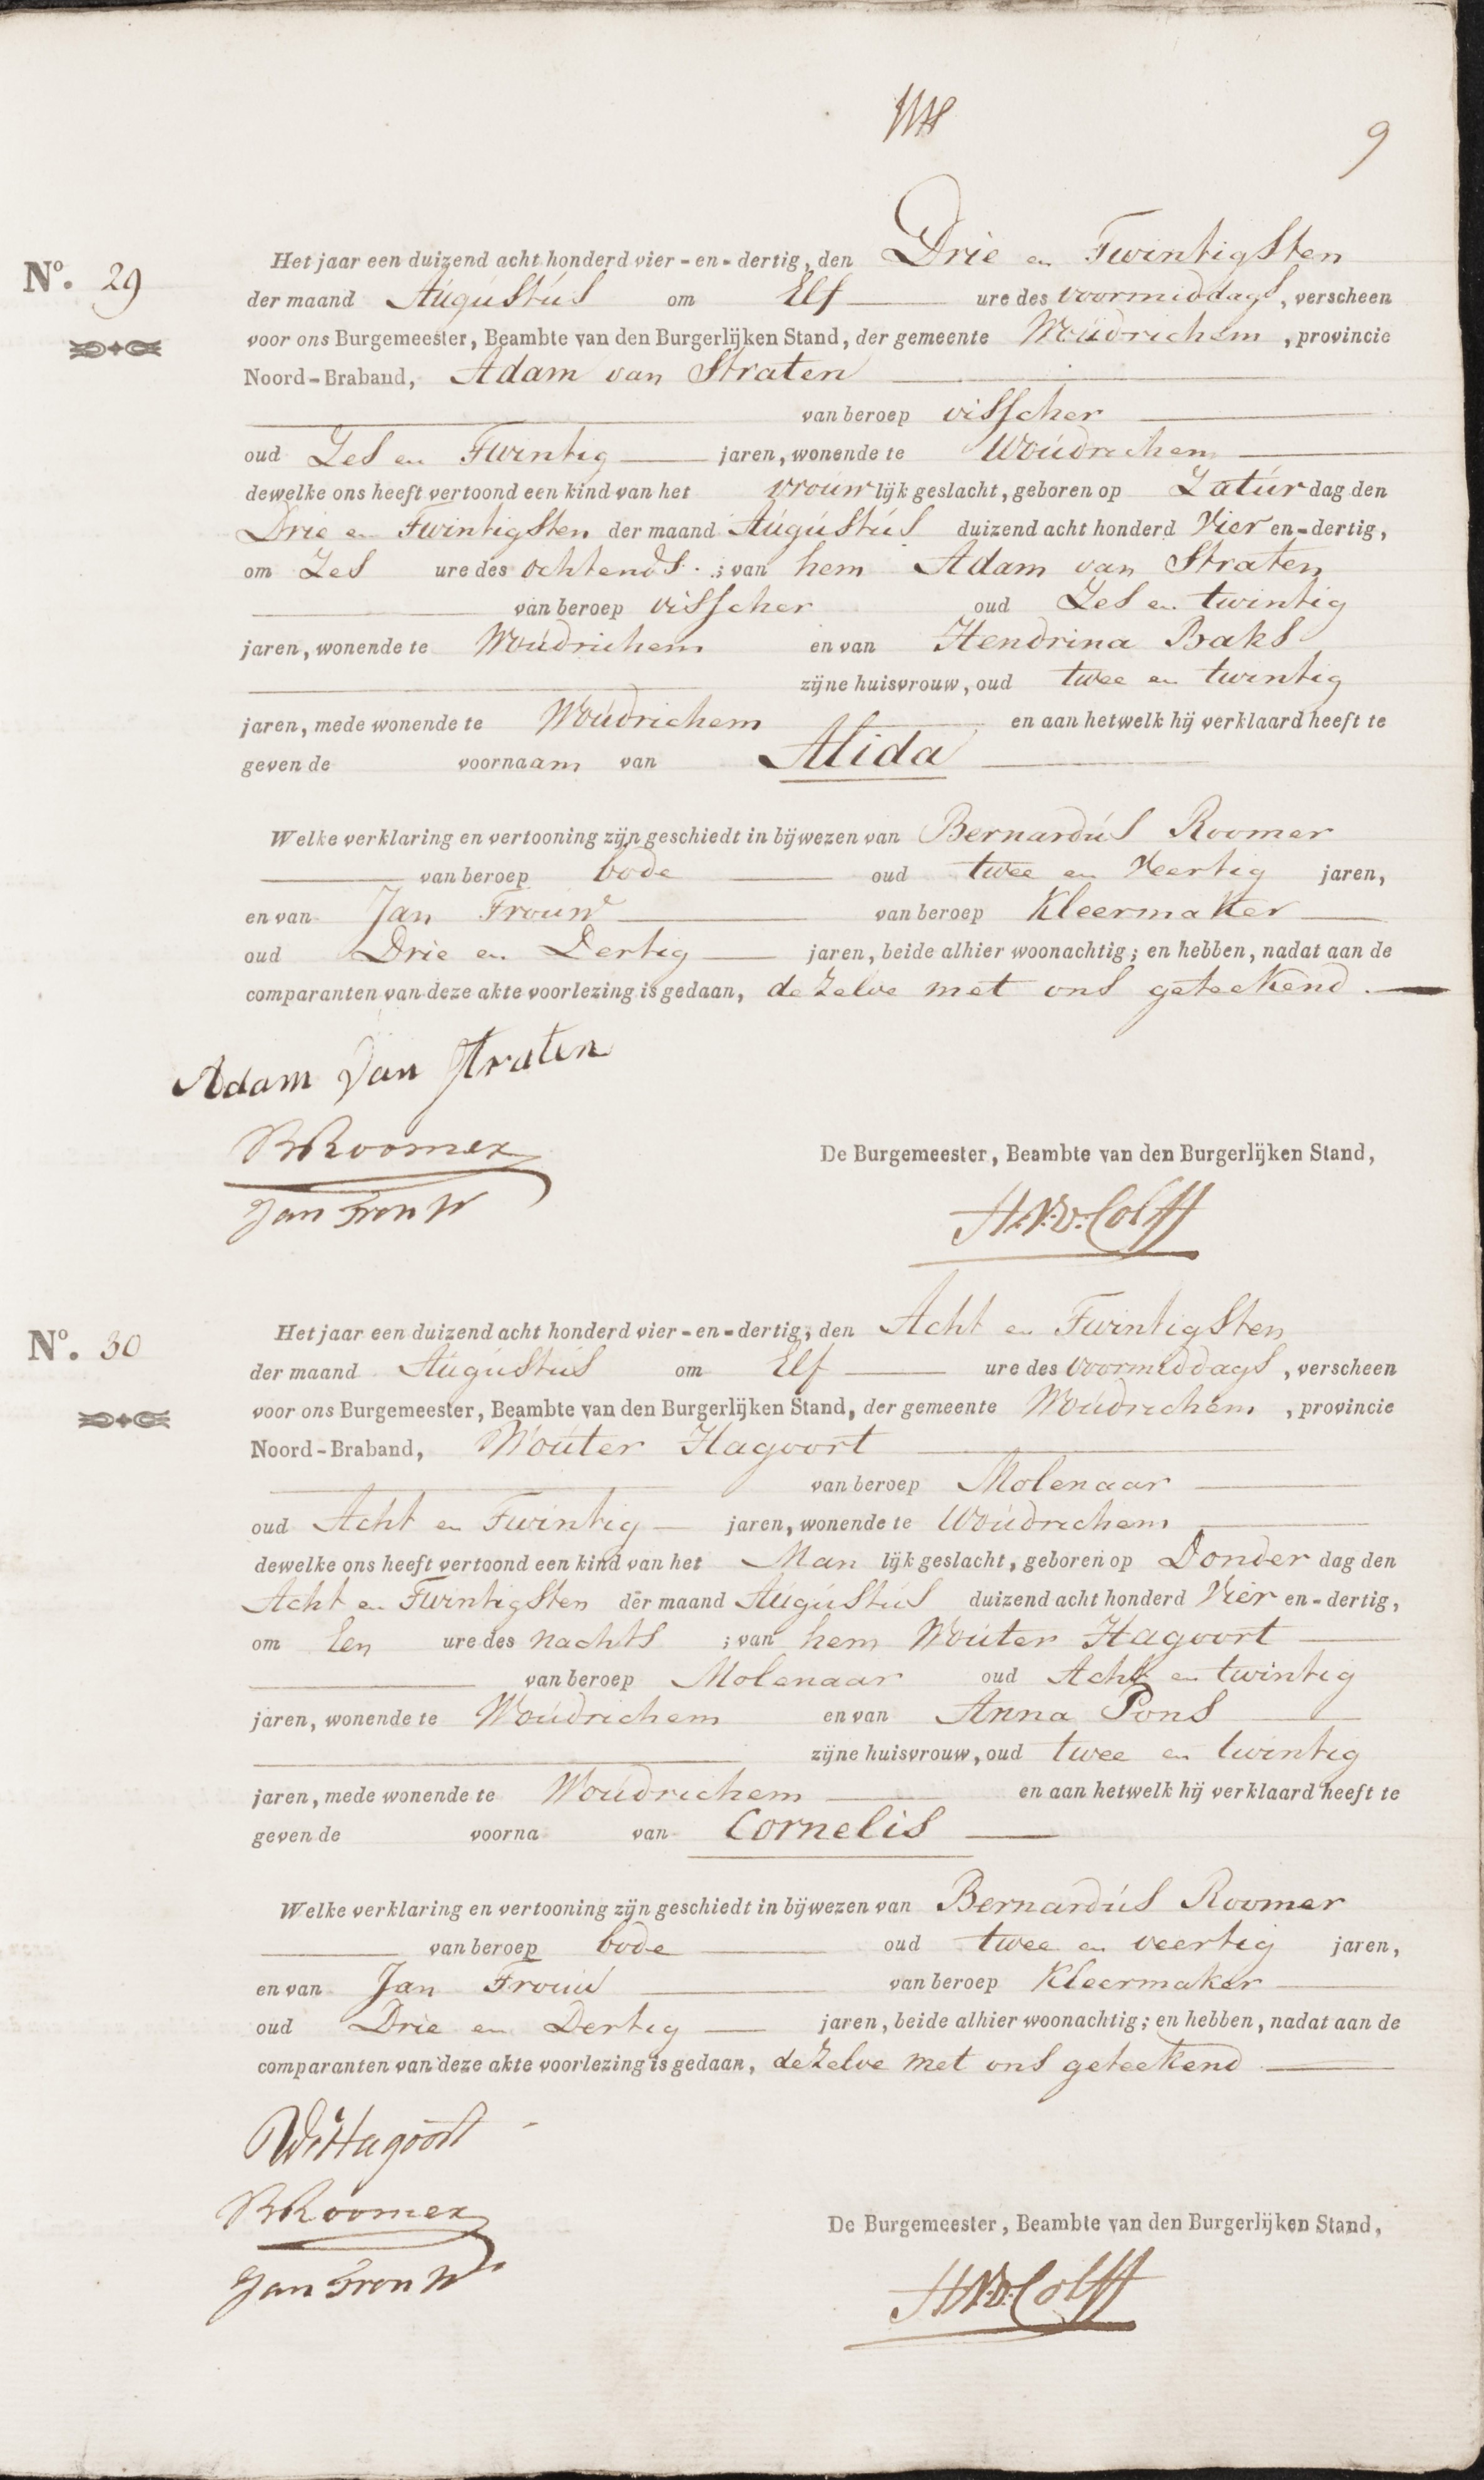 9
Nº. 29
Het jaar een duizend acht honderd vier-en-dertig, den Drie en Twintigsten
der maand Augustus om Elf ure des voormiddags, verscheen
voor ons Burgemeester, Beambte van den Burgerlijken Stand, der gemeente Woudrichem, provincie
Noord-Braband, Adam van Straten
van beroep visscher
oud Zes en Twintig jaren, wonende te Woudrichem
dewelke ons heeft vertoond een kind van het vrouwlijk geslacht, geboren op Zaturdag den
Drie en Twintigsten der maand Augustus duizend acht honderd Vier en-dertig,
om Zes ure des ochtends.; van hem Adam van Straten
van beroep visscher oud Zes en twintig
jaren, wonende te Woudrichem en van Hendrina Baks
zijne huisvrouw, oud twee en twintig
jaren, mede wonende te Woudrichem en aan hetwelk hij verklaard heeft te
geven de voornaam van Alida
Welke verklaring en vertooning zijn geschiedt in bijwezen van Bernardus Roomer
van beroep bode oud twee en Veertig jaren,
en van Jan Trouw van beroep Kleermaker
oud Drie en Dertig jaren, beide alhier woonachtig; en hebben, nadat aan de
comparanten van deze akte voorlezing is gedaan, dezelve met ons geteekend.
Adam van Straten
B Roomer
Jan Trouw
De Burgemeester, Beambte van den Burgerlijken Stand,
H.N.v.Colff
Nº. 30
Het jaar een duizend acht honderd vier-en-dertig, den Acht en Twintigsten
der maand Augustus om Elf ure des voormiddags, verscheen
voor ons Burgemeester, Beambte van den Burgerlijken Stand, der gemeente Woudrichem, provincie
Noord-Braband, Wouter Hagoort
van beroep Molenaar
oud Acht en Twintig jaren, wonende te Woudrichem
dewelke ons heeft vertoond een kind van het Man lijk geslacht, geboren op Donder dag den
Acht en Twintigsten der maand Augustus duizend acht honderd Vier en-dertig,
om Een ure des nachts ; van hem Wouter Hagoort
van beroep Molenaar oud Acht en twintig
jaren, wonende te Woudrichem en van Anna Pons
zijne huisvrouw, oud twee en twintig
jaren, mede wonende te Woudrichem en aan hetwelk hij verklaard heeft te
geven de voorna van Cornelis
Welke verklaring en vertooning zijn geschiedt in bijwezen van Bernardus Roomer
van beroep bode oud twee en veertig jaren,
en van Jan Trouw van beroep Kleermaker
oud Drie en Dertig jaren, beide alhier woonachtig; en hebben, nadat aan de
comparanten van deze akte voorlezing is gedaan, dezelve met ons geteekend
W Hagoort
B Roomer
Jan Trouw
De Burgemeester, Beambte van den Burgerlijken Stand,
H.N.v.Colff